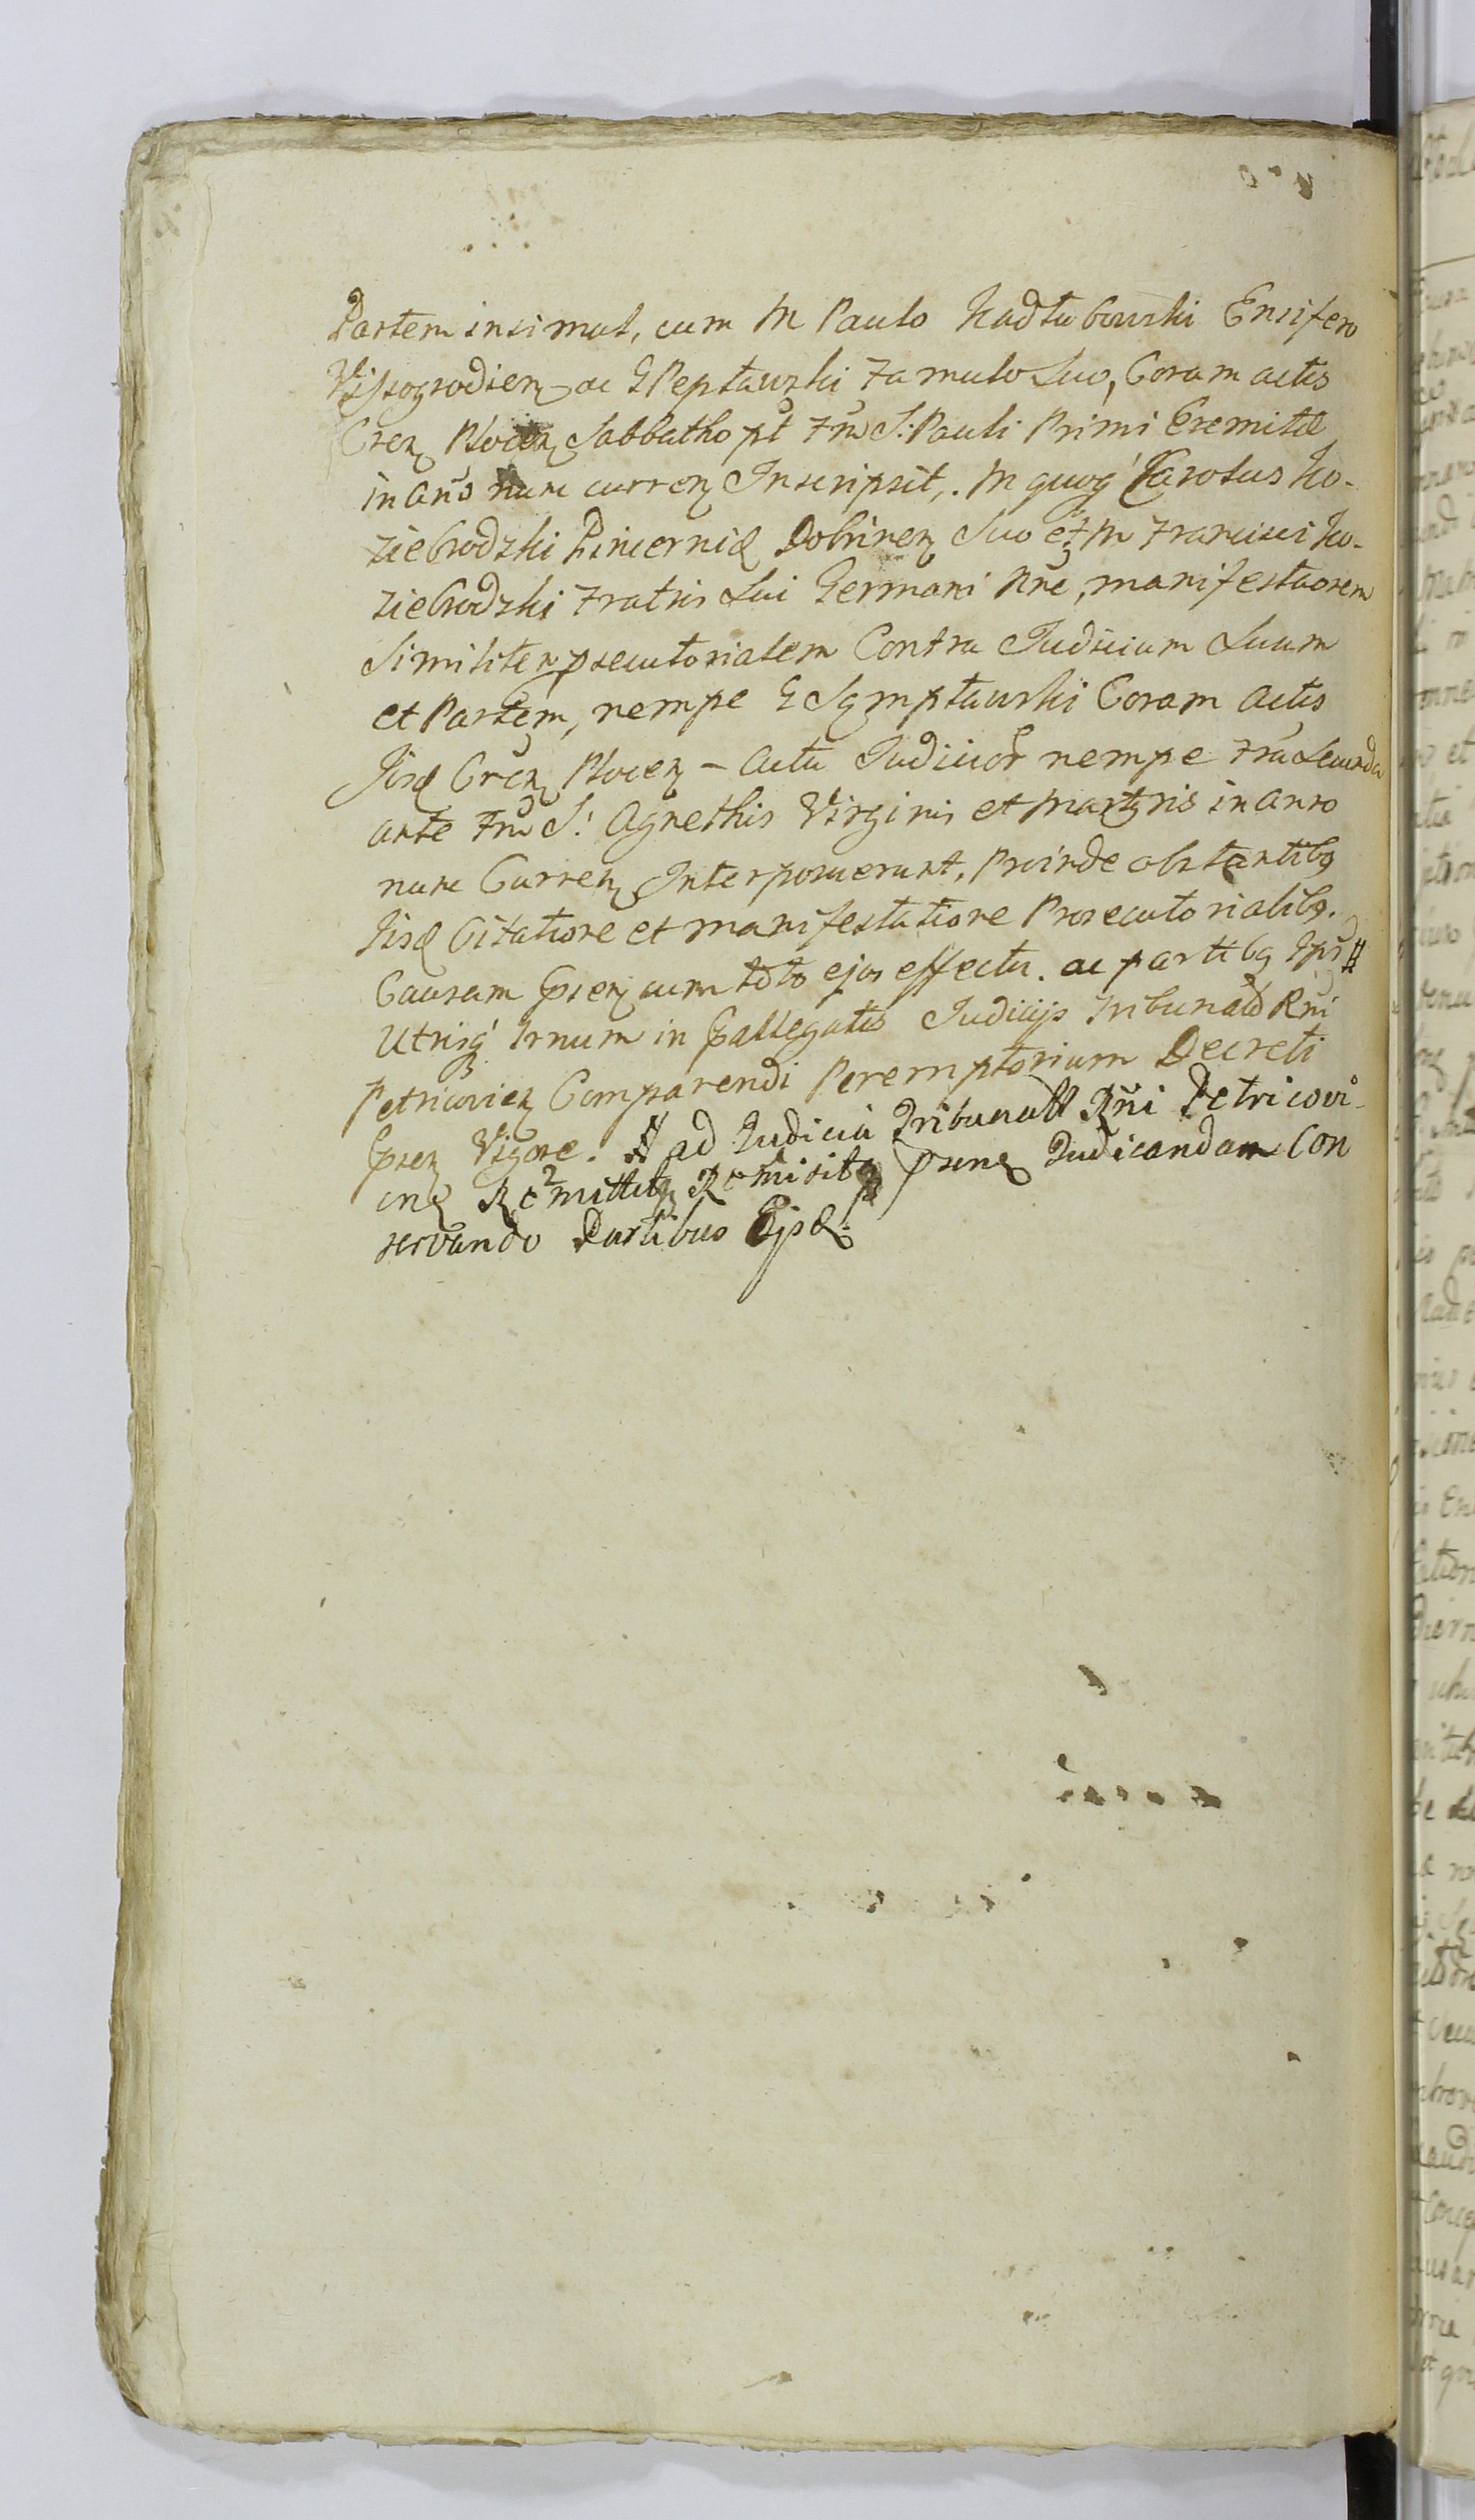 Partem insimul, cum M Paulo Kadłubowski Ensifero
Vissogrodien ac G Pepławski Famulo Suo, Coram actis
Cren Plocen Sabbatho pt Fm S: Pauli Primi Eremitæ
in año nunc curren Inscripsit, M quoq Carolus Ko-
ziebrodzki Pincerniæ Dobrinen Suo et M Francisci Ko-
ziebrodzki Fratris Sui Germani Nne, manifestaorem
Similiter psecutorialem Contra Judicium Suum
et Partem, nempe G Sempławski Coram actis
Jisd Cren Plocen – actu Judicior nempe Fria Secunda
ante Fm S: Agnethis Virginis et Martyris in anno
nunc Curren Interposuerunt, Proinde obstantibq
Jisd Citatione et manifestatione Prosecutorialibq.
Causam Psen cum toto ejus effectu. ac partibq Ips #
Utrisq Trnum in Pallegatis Judicijs Tribunald Rni
Petricovien Comparendi Peremptorium Decreti
Psen Vigore. # ad Judicia Tribunall Rñi Petricovi-
en Remittit Remisitq psens Judicandam Con
servando Partibus Ejsd.